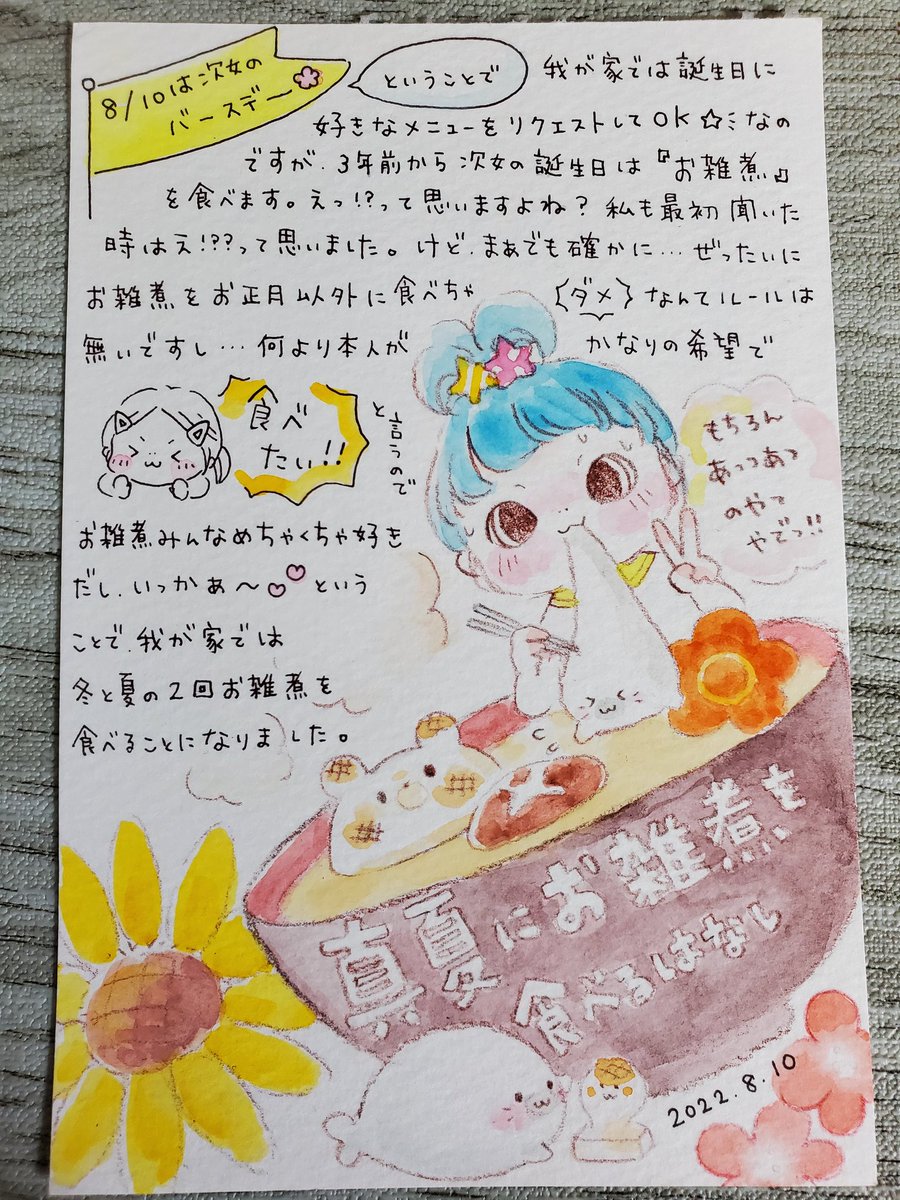 8/10は次女の
バースデー
ということで
我が家では誕生日に
好きなメニューをリクエストしてOK☆ミなの
ですが、3年前から次女の誕生日は『お雑煮』
を食べます。えっ!?って思いますよね?私も最初聞いた
時はえ!??って思いました。けど、まぁでも確かに…ぜったいに
お雑煮をお正月以外に食べちゃ
ダメ
なんてルールは
無いですし…何より本人が
かなりの希望で
食べ
たい!!
と言うので
お雑煮みんなめちゃくちゃ好き
だし、いっかぁ〜♡♡という
ことで、我が家では
冬と夏の2回お雑煮を
食べることになりました。
もちろん
あっつあつ
のやつ
やでっ!!
真夏にお雑煮を
食べるはなし
2022.8.10